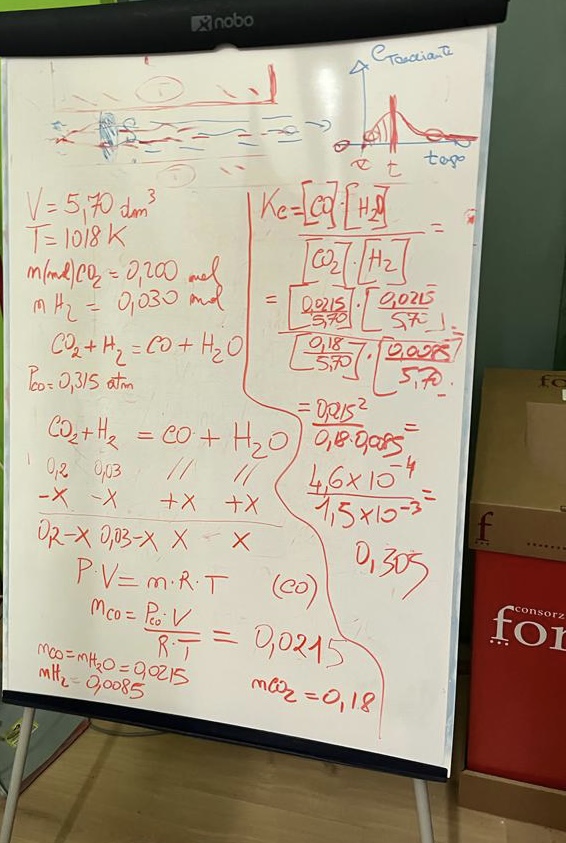 nobo
C Tracciante
τ t tempo
V = 5,70 dm³
T = 1018 K
n(mol)CO₂ = 0,200 mol
n H₂ = 0,030 mol
CO₂ + H₂ = CO + H₂O
Pco = 0,315 atm
CO₂ + H₂ = CO + H₂O
0,2 0,03 // //
-X -X +X +X
0,2-X 0,03-X X X
P·V = n·R·T (CO)
nco = Pco·V / R·T = 0,0215
nco = nH₂O = 0,0215
nH₂ = 0,0085
nCO₂ = 0,18
Kc = [CO]·[H₂O] / [CO₂]·[H₂] =
= [0,0215 / 5,70]·[0,0215 / 5,70] / [0,18 / 5,70]·[0,0085 / 5,70] =
= 0,0215² / 0,18·0,0085 =
4,6×10⁻⁴ / 1,5×10⁻³ =
0,305
fo
f
consorz
for